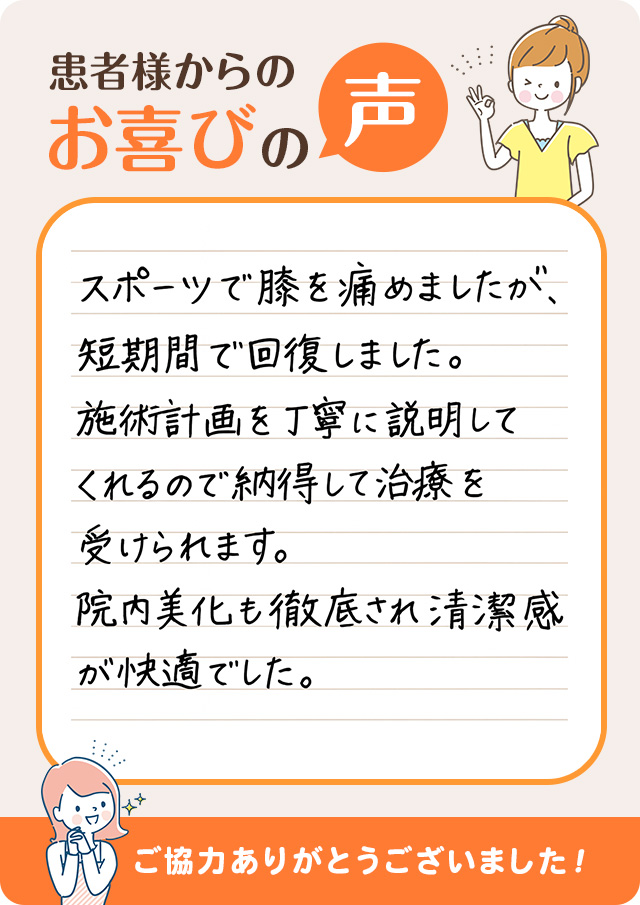 患者様からの
お喜びの声
スポーツで膝を痛めましたが、
短期間で回復しました。
施術計画を丁寧に説明して
くれるので納得して治療を
受けられます。
院内美化も徹底され清潔感
が快適でした。
ご協力ありがとうございました!